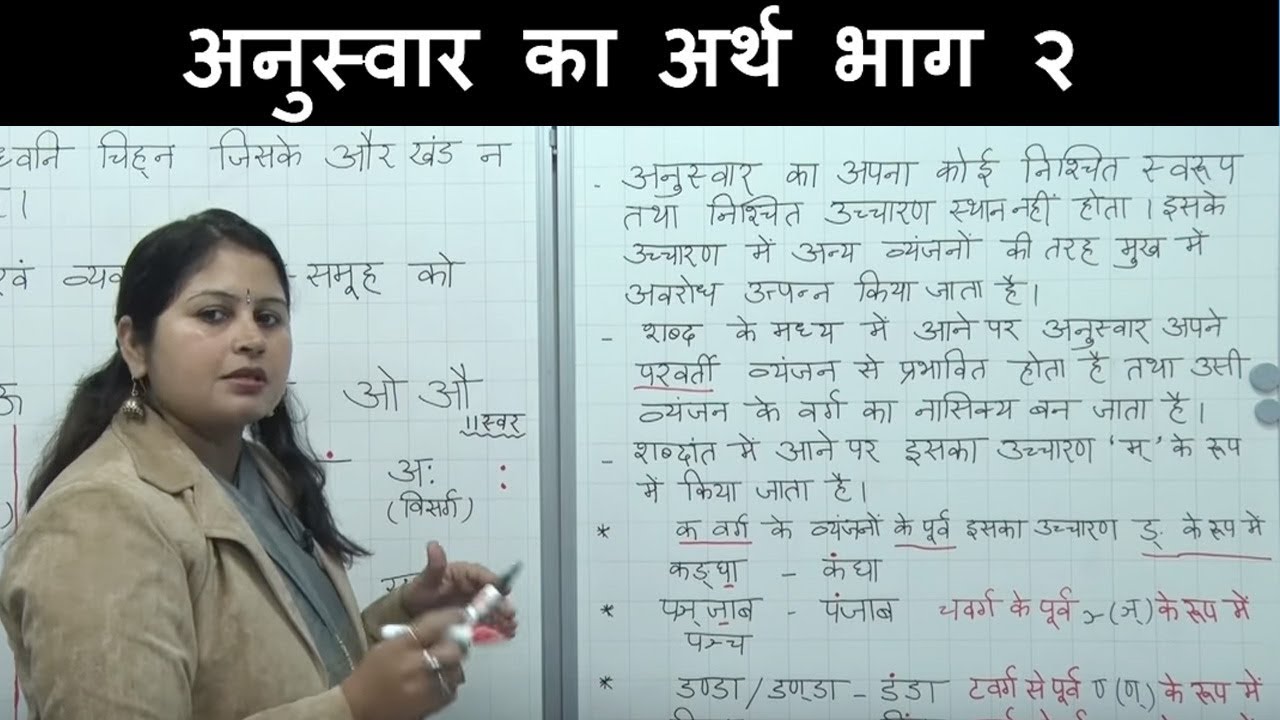 अनुस्वार का अर्थ भाग २
ध्वनि चिह्न जिसके और खंड न
एवं
-समूह को
ऊ
ओ औ
११स्वर
अः :
(विसर्ग)
- अनुस्वार का अपना कोई निश्चित स्वरूप
तथा निश्चित उच्चारण स्थान नहीं होता । इसके
उच्चारण में अन्य व्यंजनों की तरह मुख में
अवरोध उत्पन्न किया जाता है।
- शब्द के मध्य में आने पर अनुस्वार अपने
परवर्ती व्यंजन से प्रभावित होता है तथा उसी
व्यंजन के वर्ग का नासिक्य बन जाता है।
- शब्दांत में आने पर इसका उच्चारण 'म्' के रूप
में किया जाता है।
* क वर्ग के व्यंजनों के पूर्व इसका उच्चारण ङ् के रूप में
कङ्घा - कंघा
* पञ्जाब - पंजाब चवर्ग के पूर्व ञ्(ञ्) के रूप में
पञ्च
* डण्डा / डण्डा - डंडा टवर्ग से पूर्व ण्(ण्) के रूप में